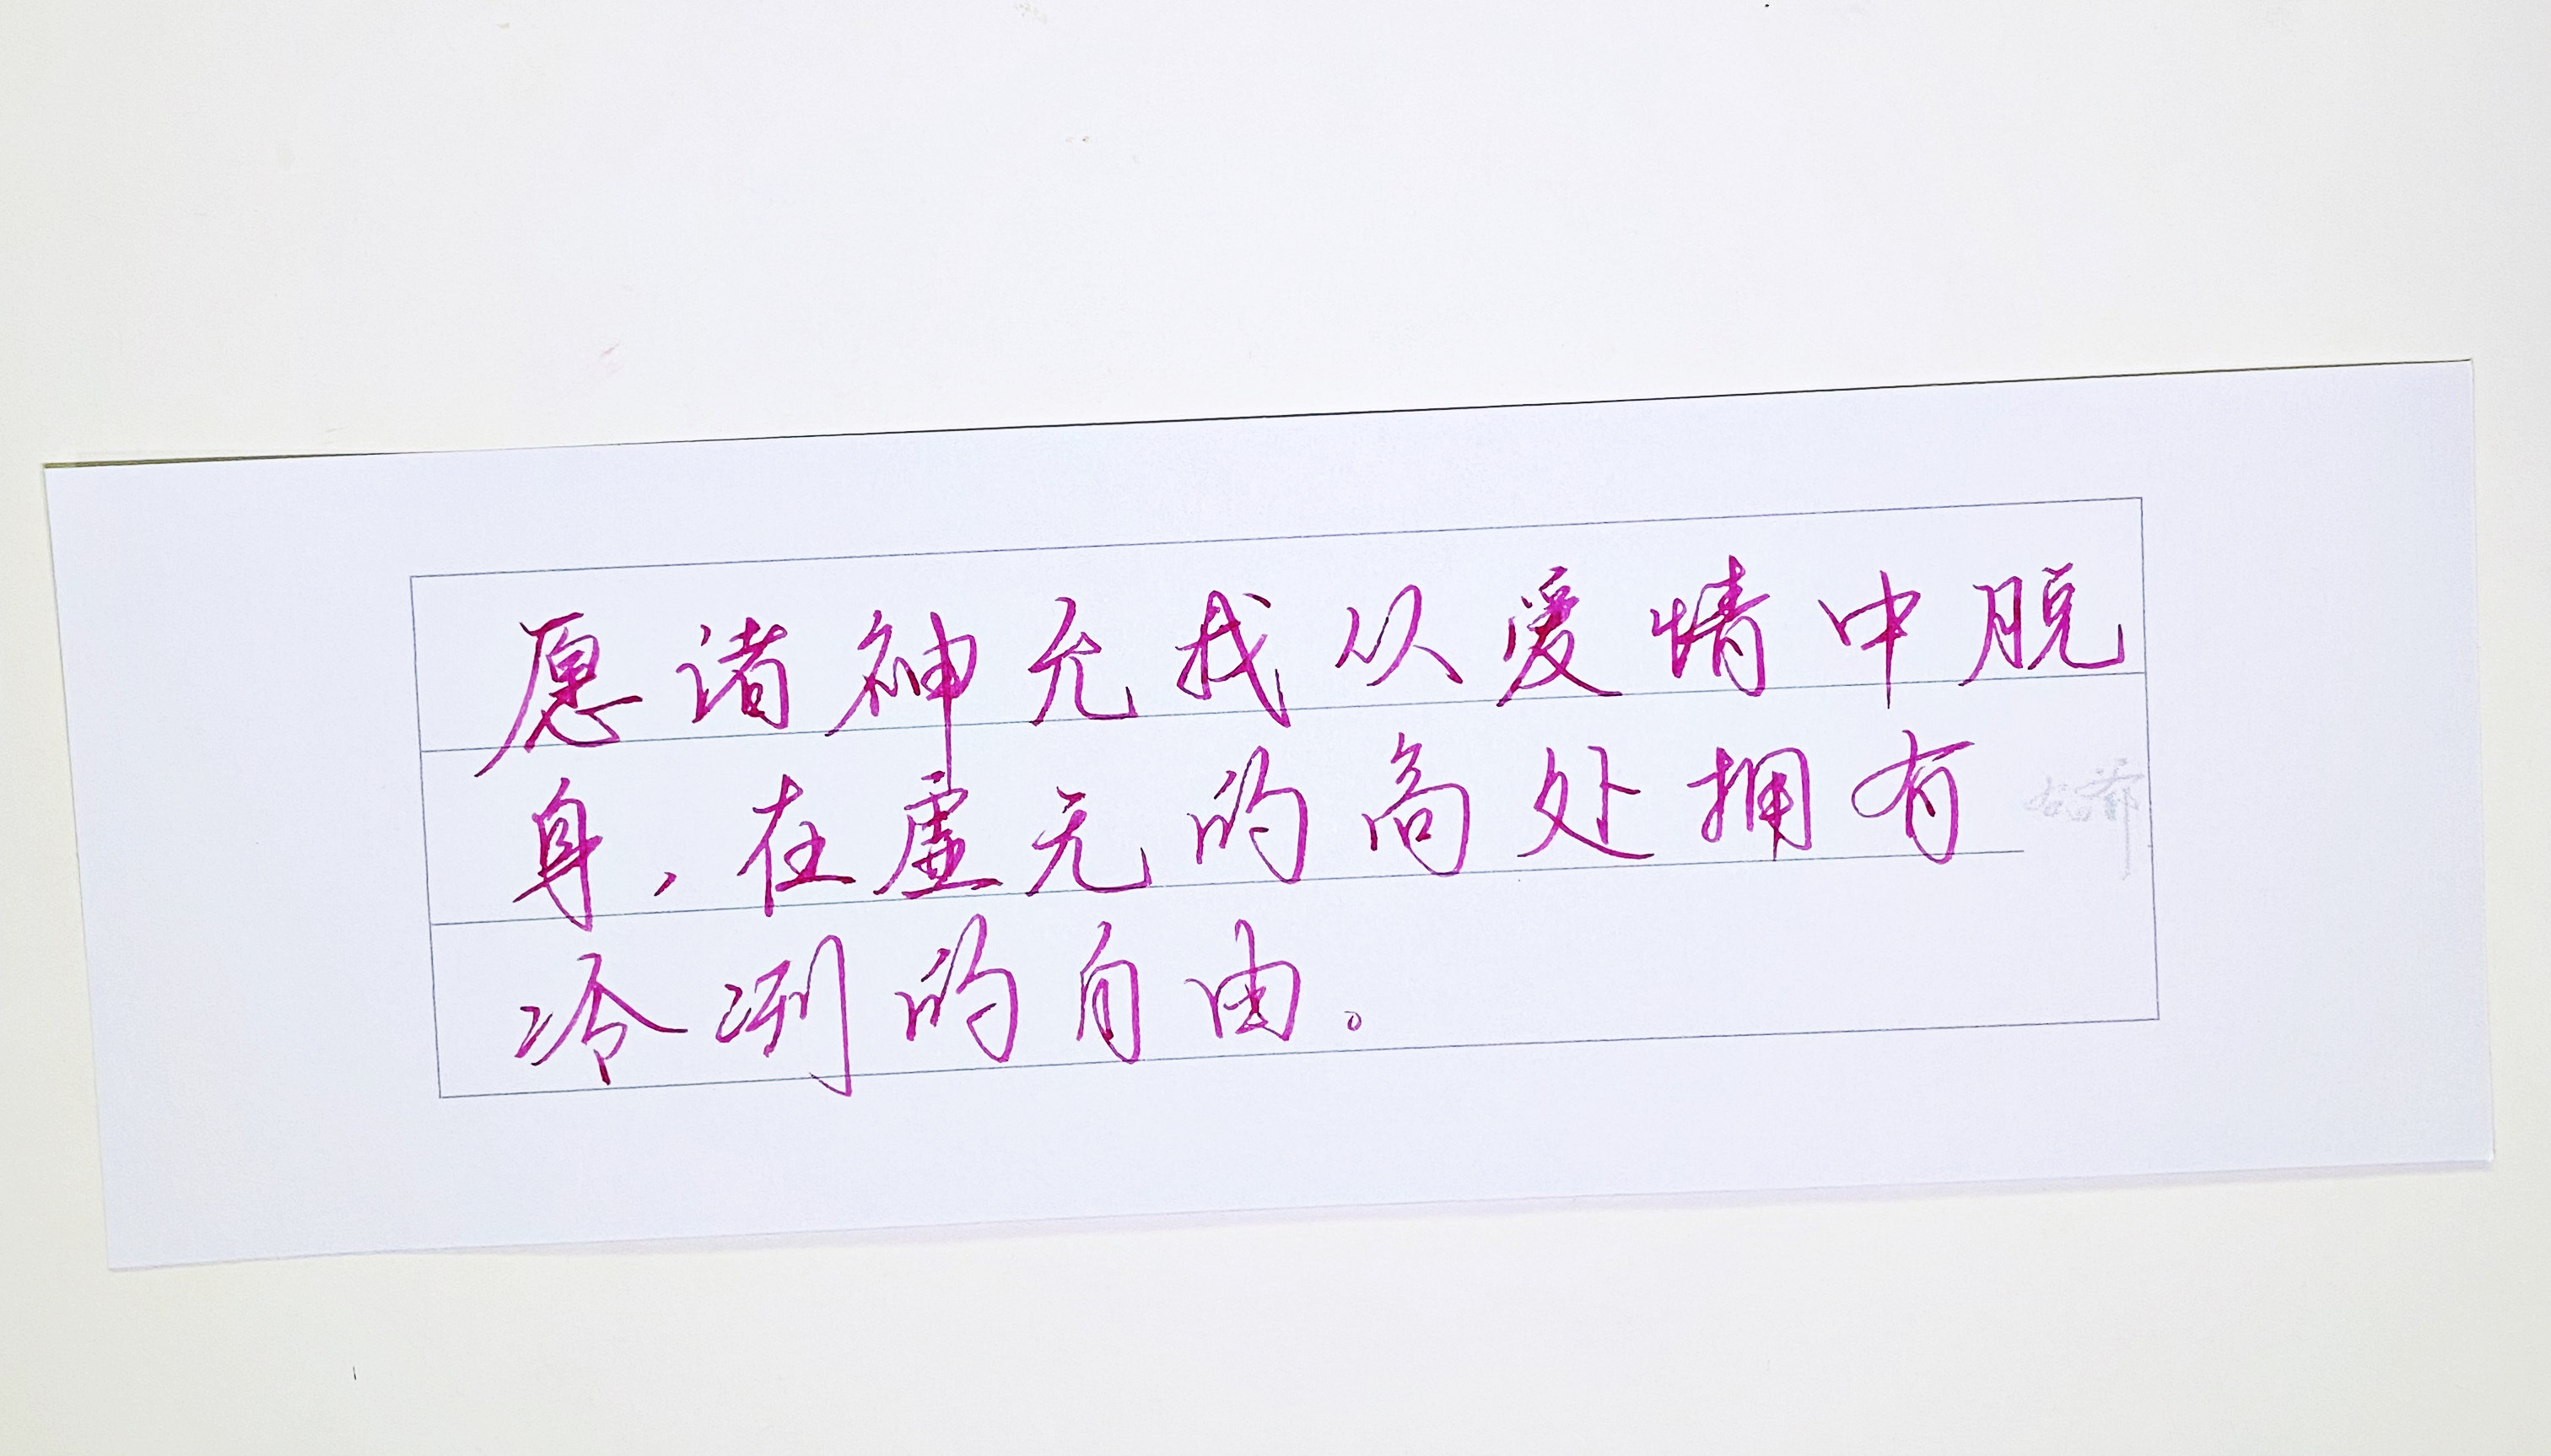 愿诸神允我从爱情中脱
身，在虚无的高处拥有
冷冽的自由。